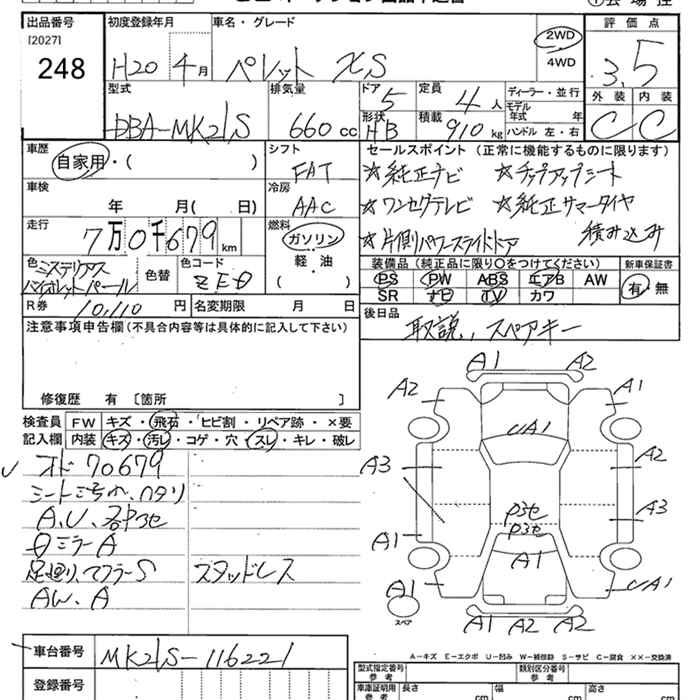 出品番号 初度登録年月 車名・グレード 評価点
[2027]
248
H20年 4月 パレット XS 2WD 3.5
4WD
型式 排気量 ドア 定員 ディーラー・並行 外装 内装
5 4人 モデル年式 年
DBA-MK21S 660cc 形状 HB 積載 910kg ハンドル 左・右 C C
車歴 シフト セールスポイント (正常に機能するものに限ります)
自家用・( ) FAT ☆純正ナビ ☆チップアップシート
車検 冷房
年 月( 日) AAC ☆ワンセグテレビ ☆純正サマータイヤ
走行 燃料 積み込み
7万0千679km ガソリン ☆片側パワースライドドア
軽・油
色 ミステリアス 色替 色コード ( ) 装備品(純正品に限り○をつけてください) 新車保証書
バイオレットパール ZE0 PS PW ABS エアB AW 有・無
SR ナビ TV カワ
R券 10,110円 名変期限 月 日
後日品
取説、スペアキー
注意事項申告欄(不具合内容等は具体的に記入して下さい)
修復歴 有 [箇所 ]
検査員 FW キズ・飛石・ヒビ割・リペア跡・×要
記入欄 内装 キズ・汚レ・コゲ・穴・スレ・キレ・破レ
オド 70679
シート汚れ、ヘタリ
A.U、各部
ミラーA
足廻り、マフラーS スタッドレス
AW.A
A1 A2
A2 A1
UA1
A3 A2
A3
P3セ
P3セ
A1 A1
A1 UA1
スペア
A1 A2 A2
A-キズ E-エクボ U-凹ミ W-補修跡 S-サビ C-腐食 ××-交換済
車台番号 MK21S-116221
型式指定番号 参考 類別区分番号 参考
登録番号 車庫証明用 参考 長さ cm 幅 cm 高さ cm